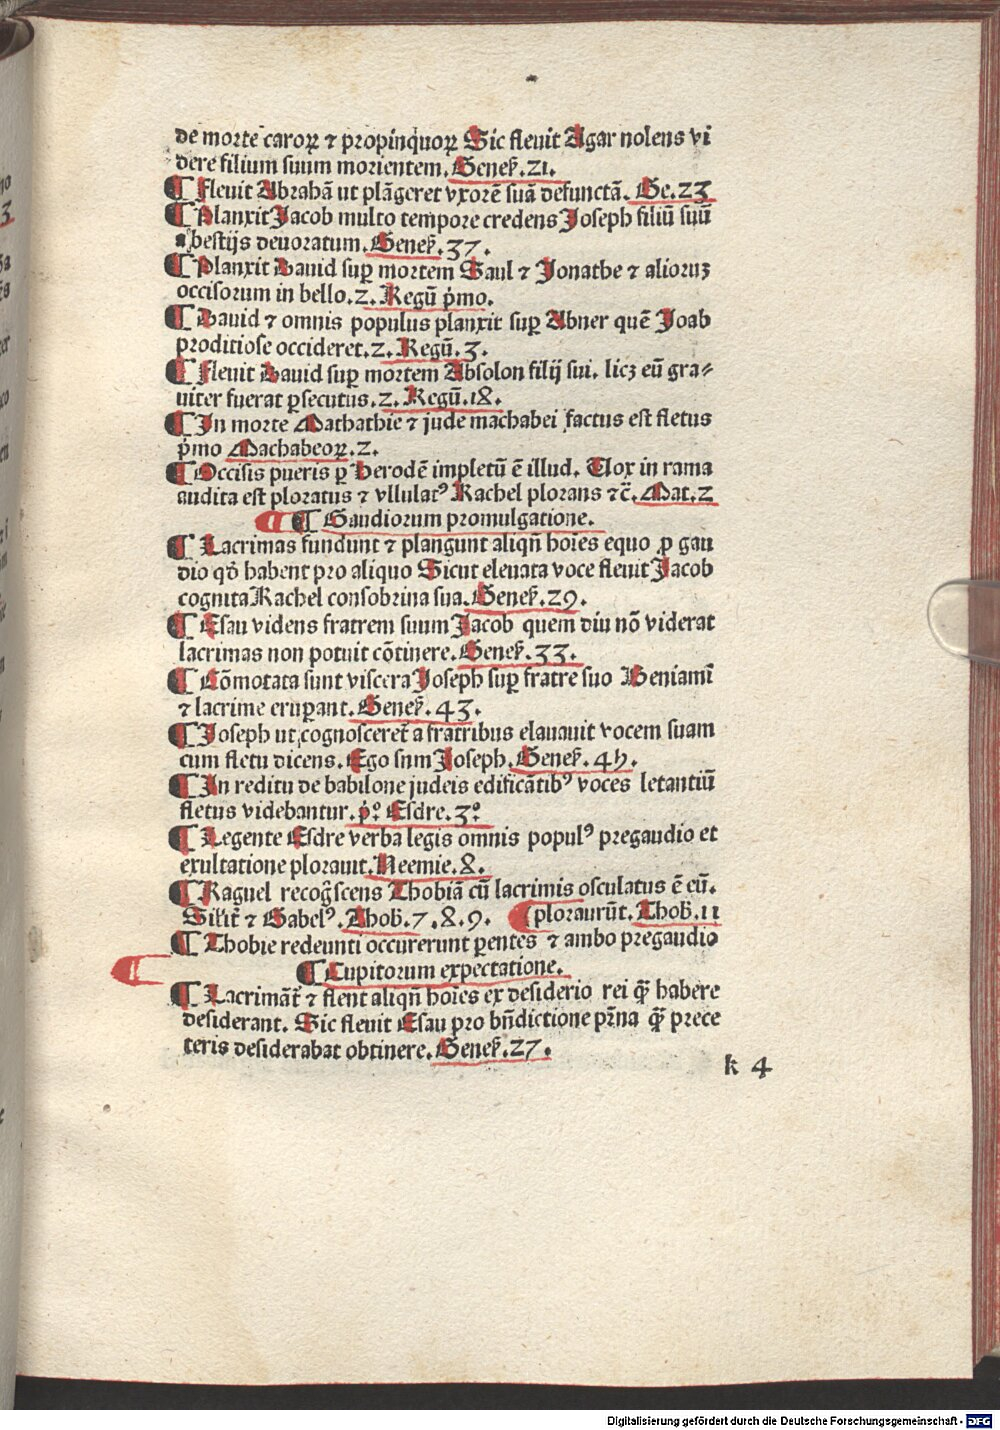 de morte caroꝝ ⁊ propinquoꝝ Sic fleuit Agar nolens vi
dere filium suum morientem. Genes̄.21.
¶ Fleuit Abrahā ut plāgeret vxorē suā defunctā. Ge.23
¶ Planxit Jacob multo tempore credens Joseph filiū suū
a bestijs deuoratum. Genes̄.37.
¶ Planxit Dauid suꝑ mortem Saul ⁊ Jonathe ⁊ alioruꝫ
occisorum in bello.2. Regū p̄mo.
¶ Dauid ⁊ omnis populus planxit suꝑ Abner quē Joab
proditiose occideret.2. Regū.3.
¶ Fleuit Dauid suꝑ mortem Absolon filij sui. licꝫ eū gra⸗
uiter fuerat ꝑsecutus.2. Regū.18.
¶ In morte Mathathie ⁊ jude machabei factus est fletus
p̄mo Machabeoꝝ.2.
¶ Occisis pueris ꝑ Herodē impletū ē illud. Uox in rama
audita est ploratus ⁊ vllulatꝰ Rachel plorans ⁊c̄. Mat.2
¶ ¶ Gaudiorum promulgatione.
¶ Lacrimas fundunt ⁊ plangunt aliqn̄ hoīes equo ꝓ gau
dio qď habent pro aliquo Sicut eleuata voce fleuit Jacob
cognita Rachel consobrina sua. Genes̄.29.
¶ Esau videns fratrem suum Jacob quem diu nō viderat
lacrimas non potuit cōtinere. Genes̄.33.
¶ Cōmotata sunt viscera Joseph suꝑ fratre suo Beniamī
⁊ lacrime eruꝑant. Genes̄.43.
¶ Joseph ut cognosceret̄ a fratribus elauauit vocem suam
cum fletu dicens. Ego sum Joseph. Genes̄.45.
¶ In reditu de babilone judeis edificātibꝰ voces letantiū
fletus videbantur. p̄º Esdre.3º
¶ Legente Esdre verba legis omnis populꝰ pregaudio et
exultatione plorauit. Neemie.8.
¶ Raguel recog̃scens Thobiā cū lacrimis osculatus ē eū.
Silit̄ ⁊ Gabelꝰ. Thob̄.7.8.9. ¶ ploraurūt. Thob̄.11
¶ Thobie redeunti occurerunt ꝑentes ⁊ ambo pregaudio
¶ Cupitorum expectatione.
¶ Lacrimāt̄ ⁊ flent aliqn̄ hoīes ex desiderio rei qꝫ̄ habere
desiderant. Sic fleuit Esau pro bn̄dictione pr̄na qꝫ̄ prece
teris desiderabat obtinere. Genes̄.27.
k 4
Digitalisierung gefördert durch die Deutsche Forschungsgemeinschaft - DFG